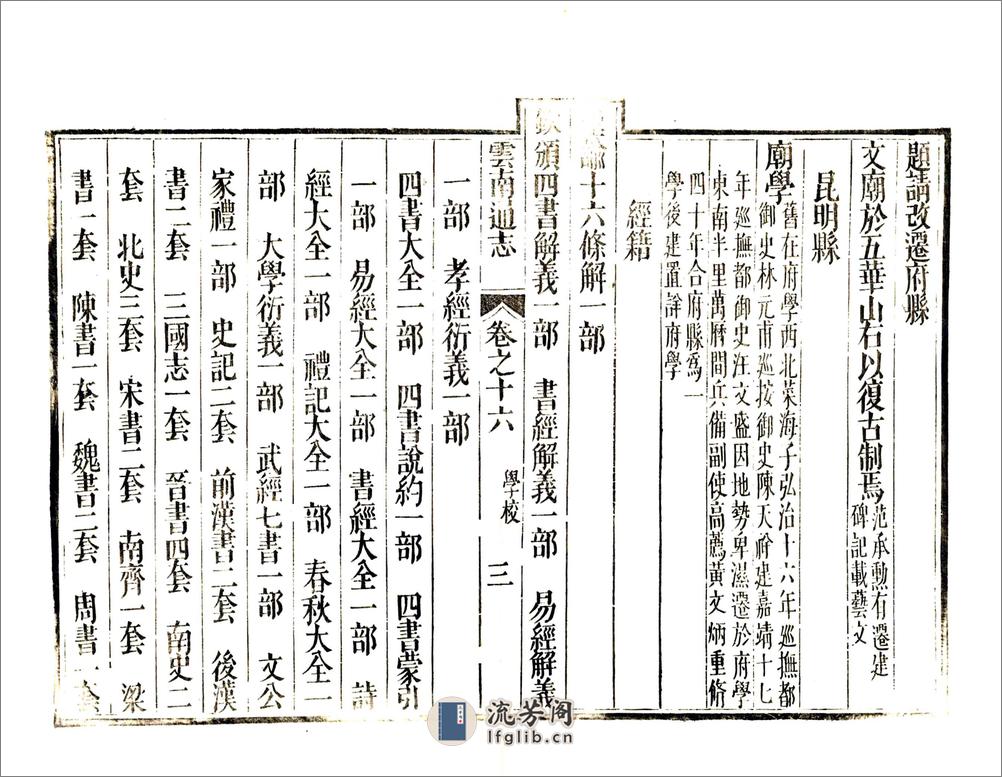 題請改遷府縣
文廟於五華山右以復古制焉范承勳有遷建
碑記載藝文
昆明縣
廟學舊在府學西北菜海子弘治十六年巡撫都
御史林元甫巡按御史陳天祥建嘉靖十七
年巡撫都御史汪文盛因地勢卑濕遷於府學
東南半里萬曆間兵備副使高薦黃文炳重脩
四十年合府縣為一
學後建置詳府學
經籍
諭十六條解一部
頒四書解義一部 書經解義一部 易經解義
雲南通志 卷之十六 學校 三
一部 孝經衍義一部
四書大全一部 四書說約一部 四書蒙引
一部 易經大全一部 書經大全一部 詩
經大全一部 禮記大全一部 春秋大全一
部 大學衍義一部 武經七書一部 文公
家禮一部 史記二套 前漢書二套 後漢
書二套 三國志一套 晉書四套 南史二
套 北史三套 宋書二套 南齊一套 梁
書一套 陳書一套 魏書二套 周書一套
流芳阁
lfglib.cn